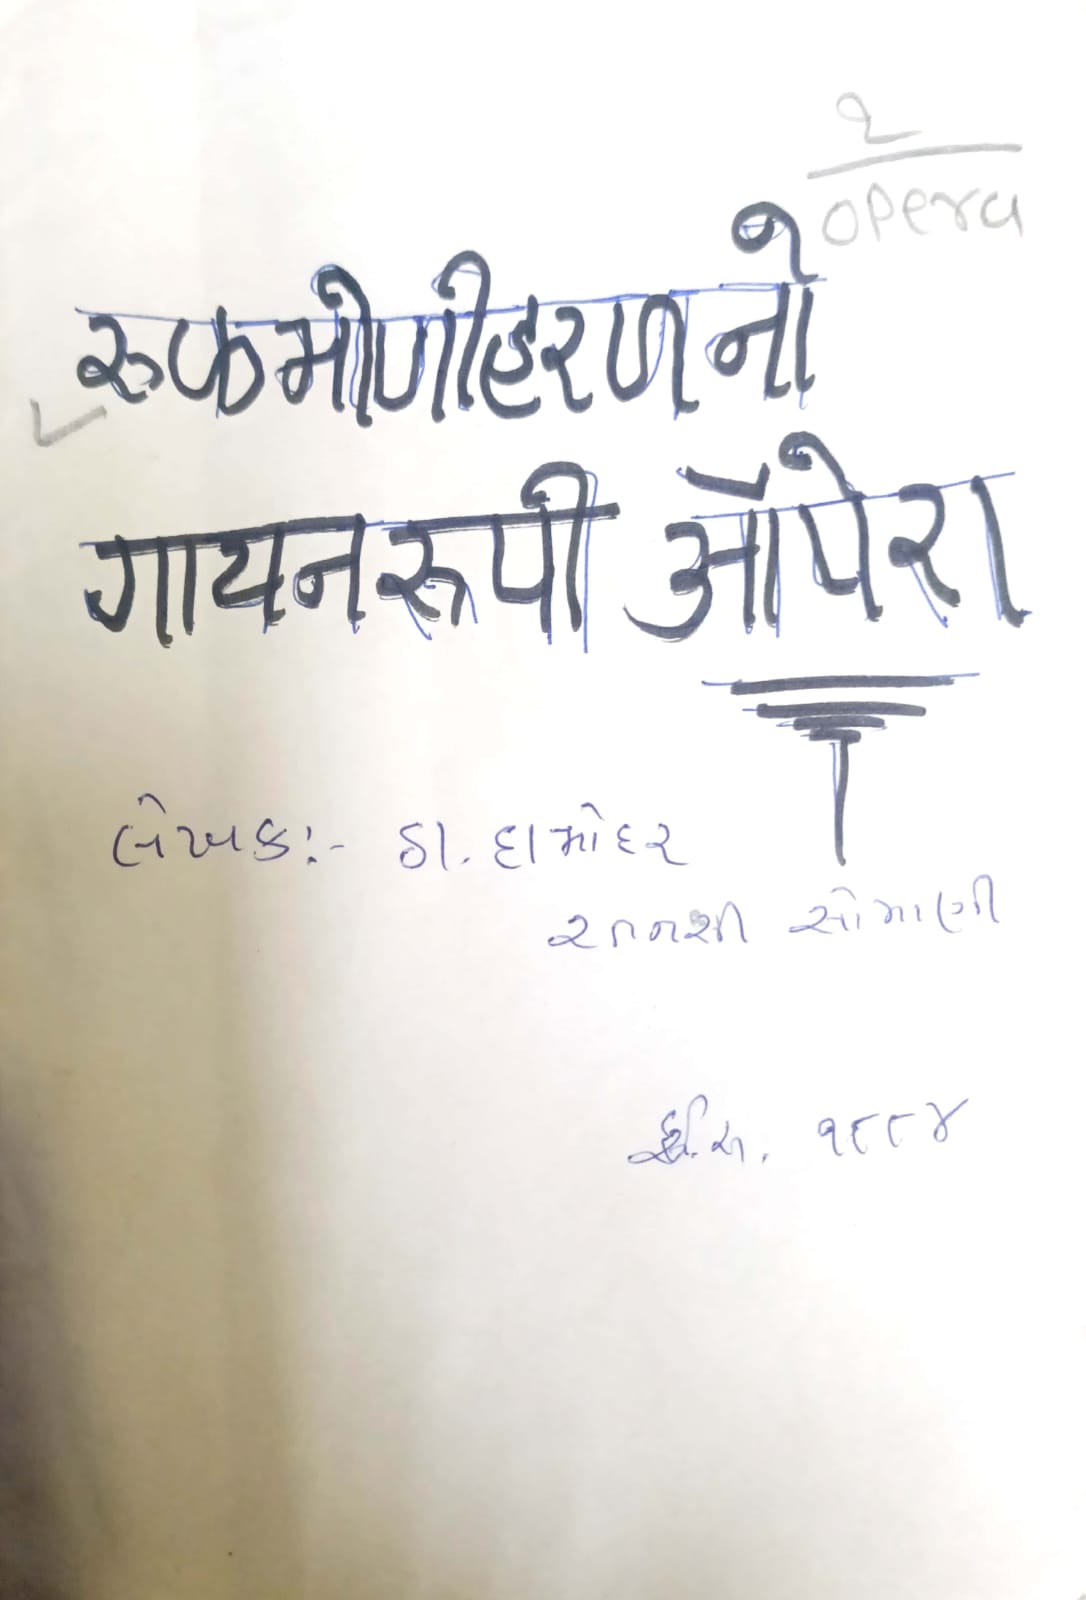 ૨
opera
रुकमीणीहरणनो
गायनरुपी ऑपेरा
લેખક:- ઠા. દામોદર
રતનશી સોમાણી
ઈ.સ. ૧૮૮૪